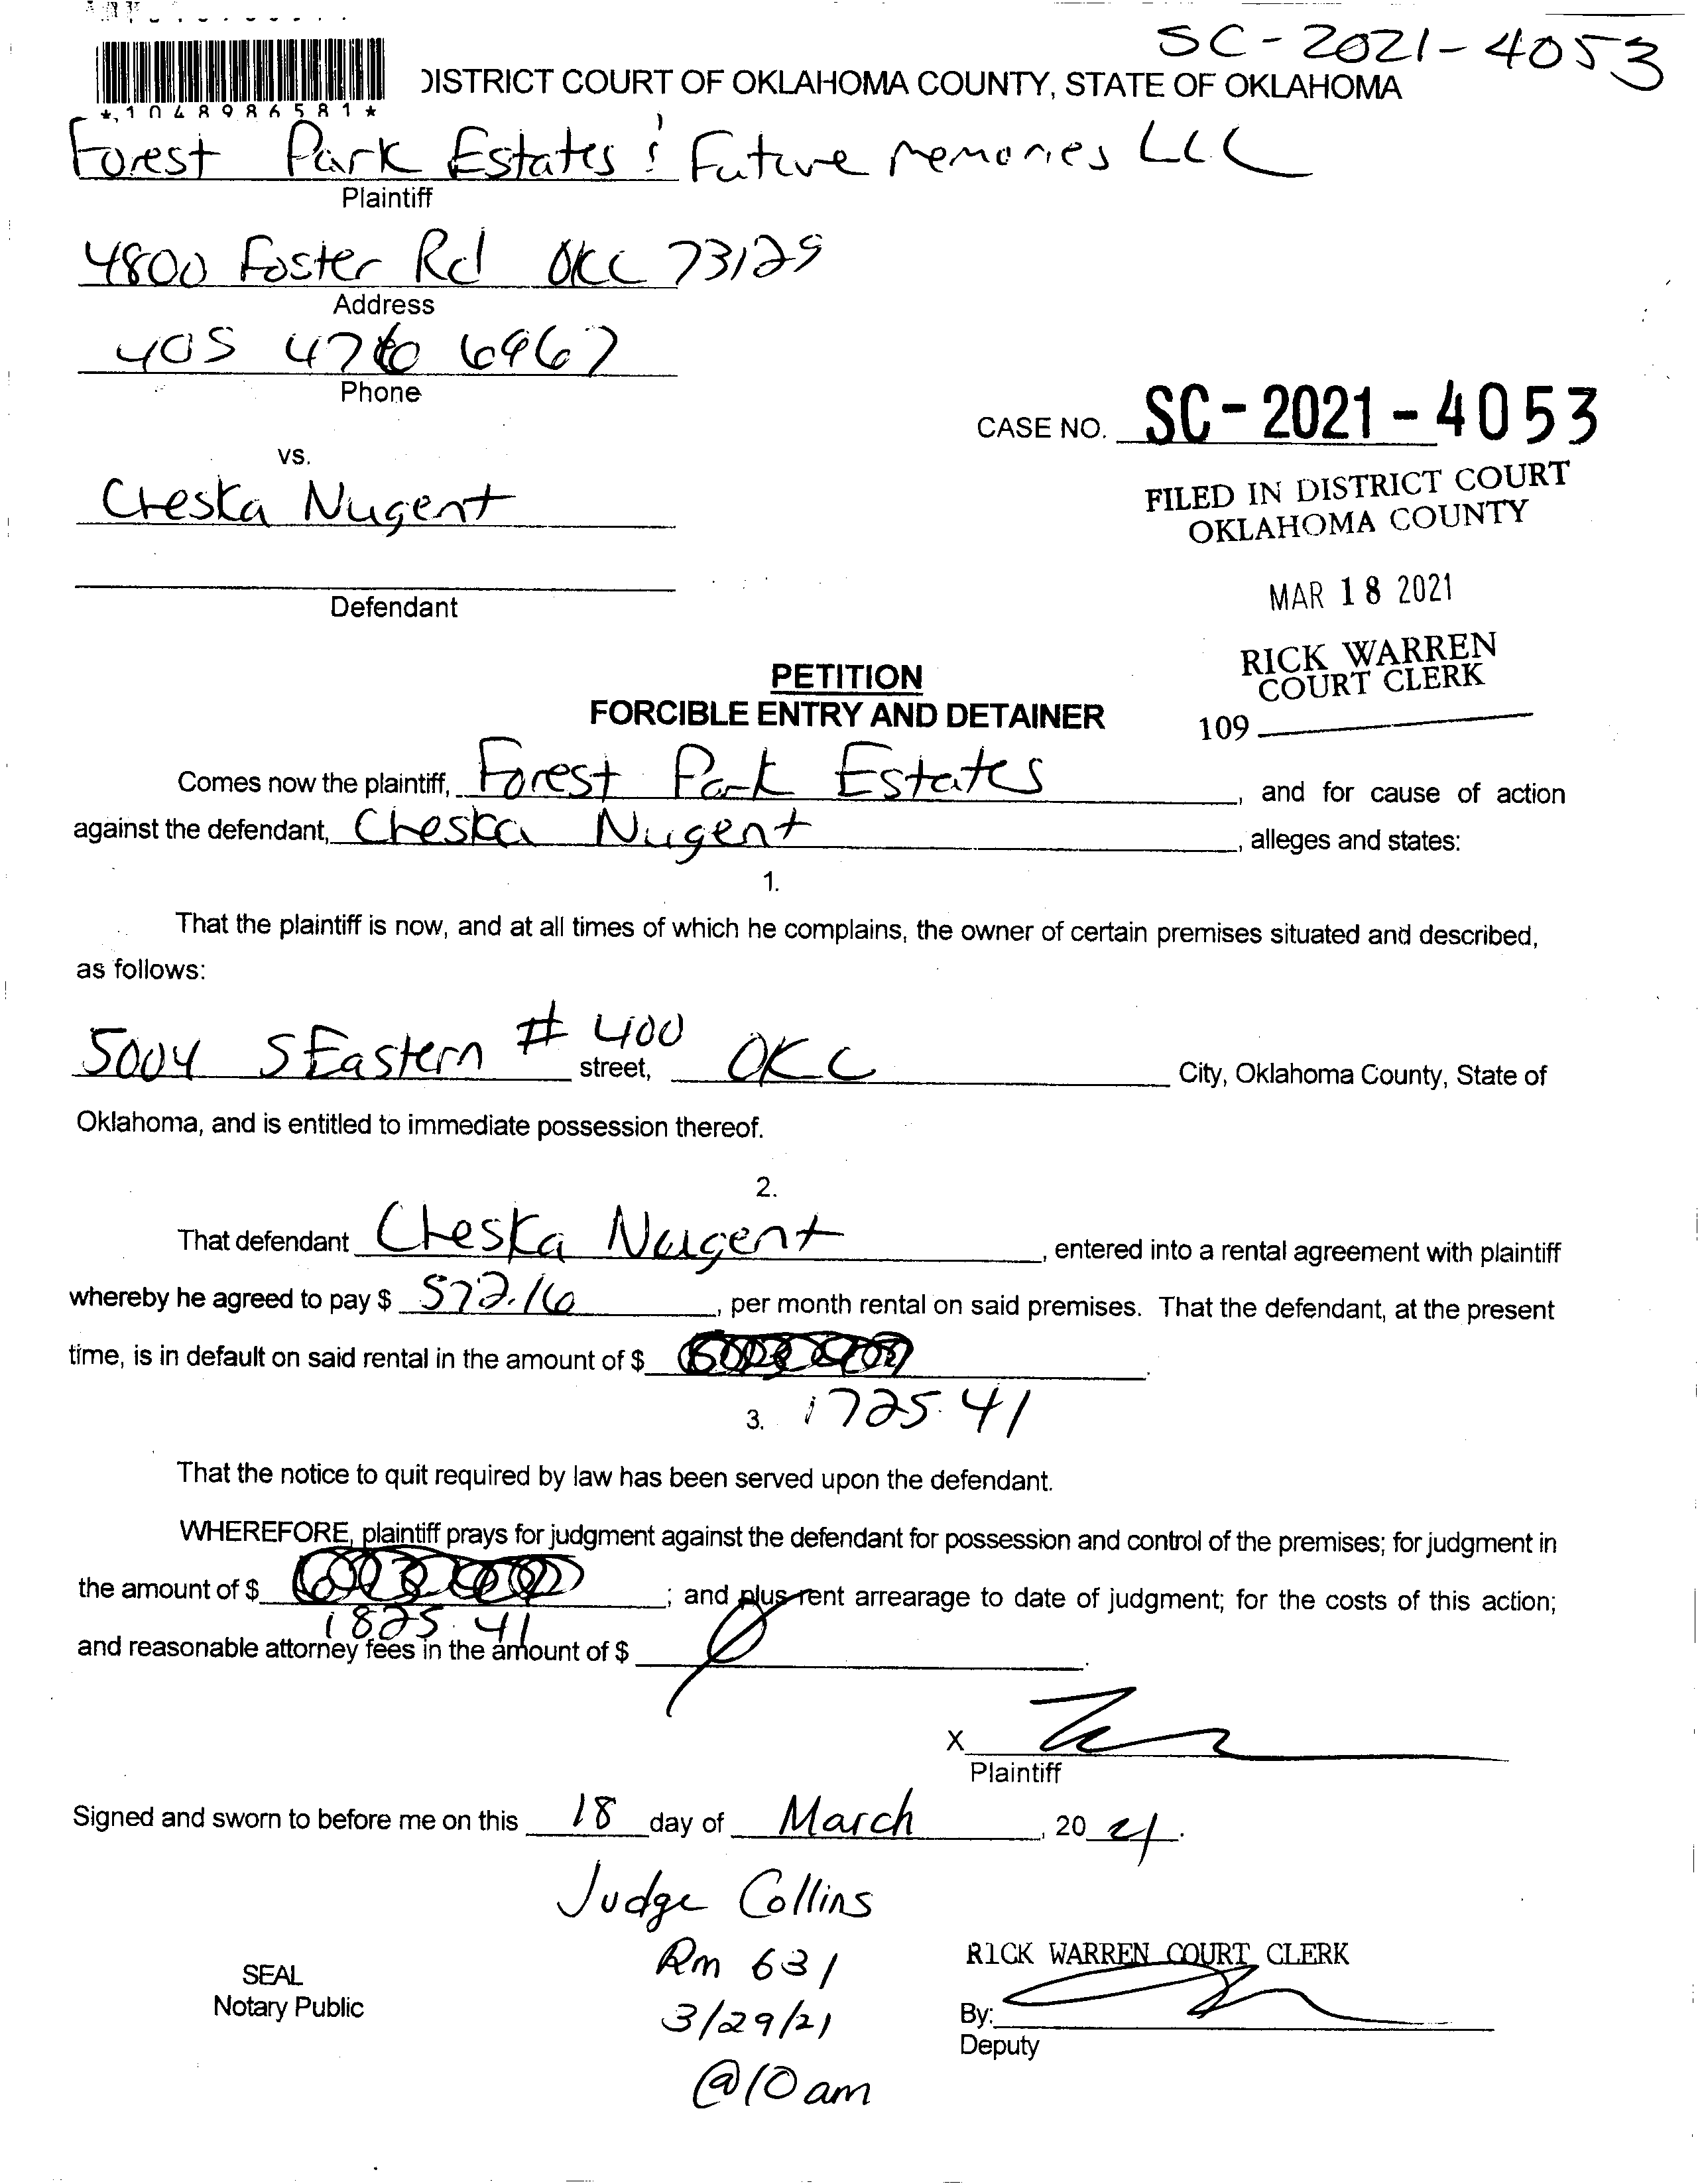 SC-2021-4053
DISTRICT COURT OF OKLAHOMA COUNTY, STATE OF OKLAHOMA
*1048986581*
Forest Park Estates & Future Memories LLC
Plaintiff
4800 Foster Rd OKC 73129
Address
405 476 6967
Phone
CASE NO. SC-2021-4053
vs.
Cheska Nugent
FILED IN DISTRICT COURT
OKLAHOMA COUNTY
Defendant
MAR 18 2021
RICK WARREN
COURT CLERK
109
PETITION
FORCIBLE ENTRY AND DETAINER
Comes now the plaintiff, Forest Park Estates, and for cause of action
against the defendant, Cheska Nugent, alleges and states:
1.
That the plaintiff is now, and at all times of which he complains, the owner of certain premises situated and described,
as follows:
5004 S Eastern # 400 street, OKC City, Oklahoma County, State of
Oklahoma, and is entitled to immediate possession thereof.
2.
That defendant Cheska Nugent, entered into a rental agreement with plaintiff
whereby he agreed to pay $ 572.16, per month rental on said premises. That the defendant, at the present
time, is in default on said rental in the amount of $ .
3. 1725.41
That the notice to quit required by law has been served upon the defendant.
WHEREFORE, plaintiff prays for judgment against the defendant for possession and control of the premises; for judgment in
the amount of $ ; and plus rent arrearage to date of judgment; for the costs of this action;
1825.41
and reasonable attorney fees in the amount of $ .
X
Plaintiff
Signed and sworn to before me on this 18 day of March, 20 21.
Judge Collins
Rm 631
3/29/21
@10am
SEAL
Notary Public
RICK WARREN COURT CLERK
By:
Deputy